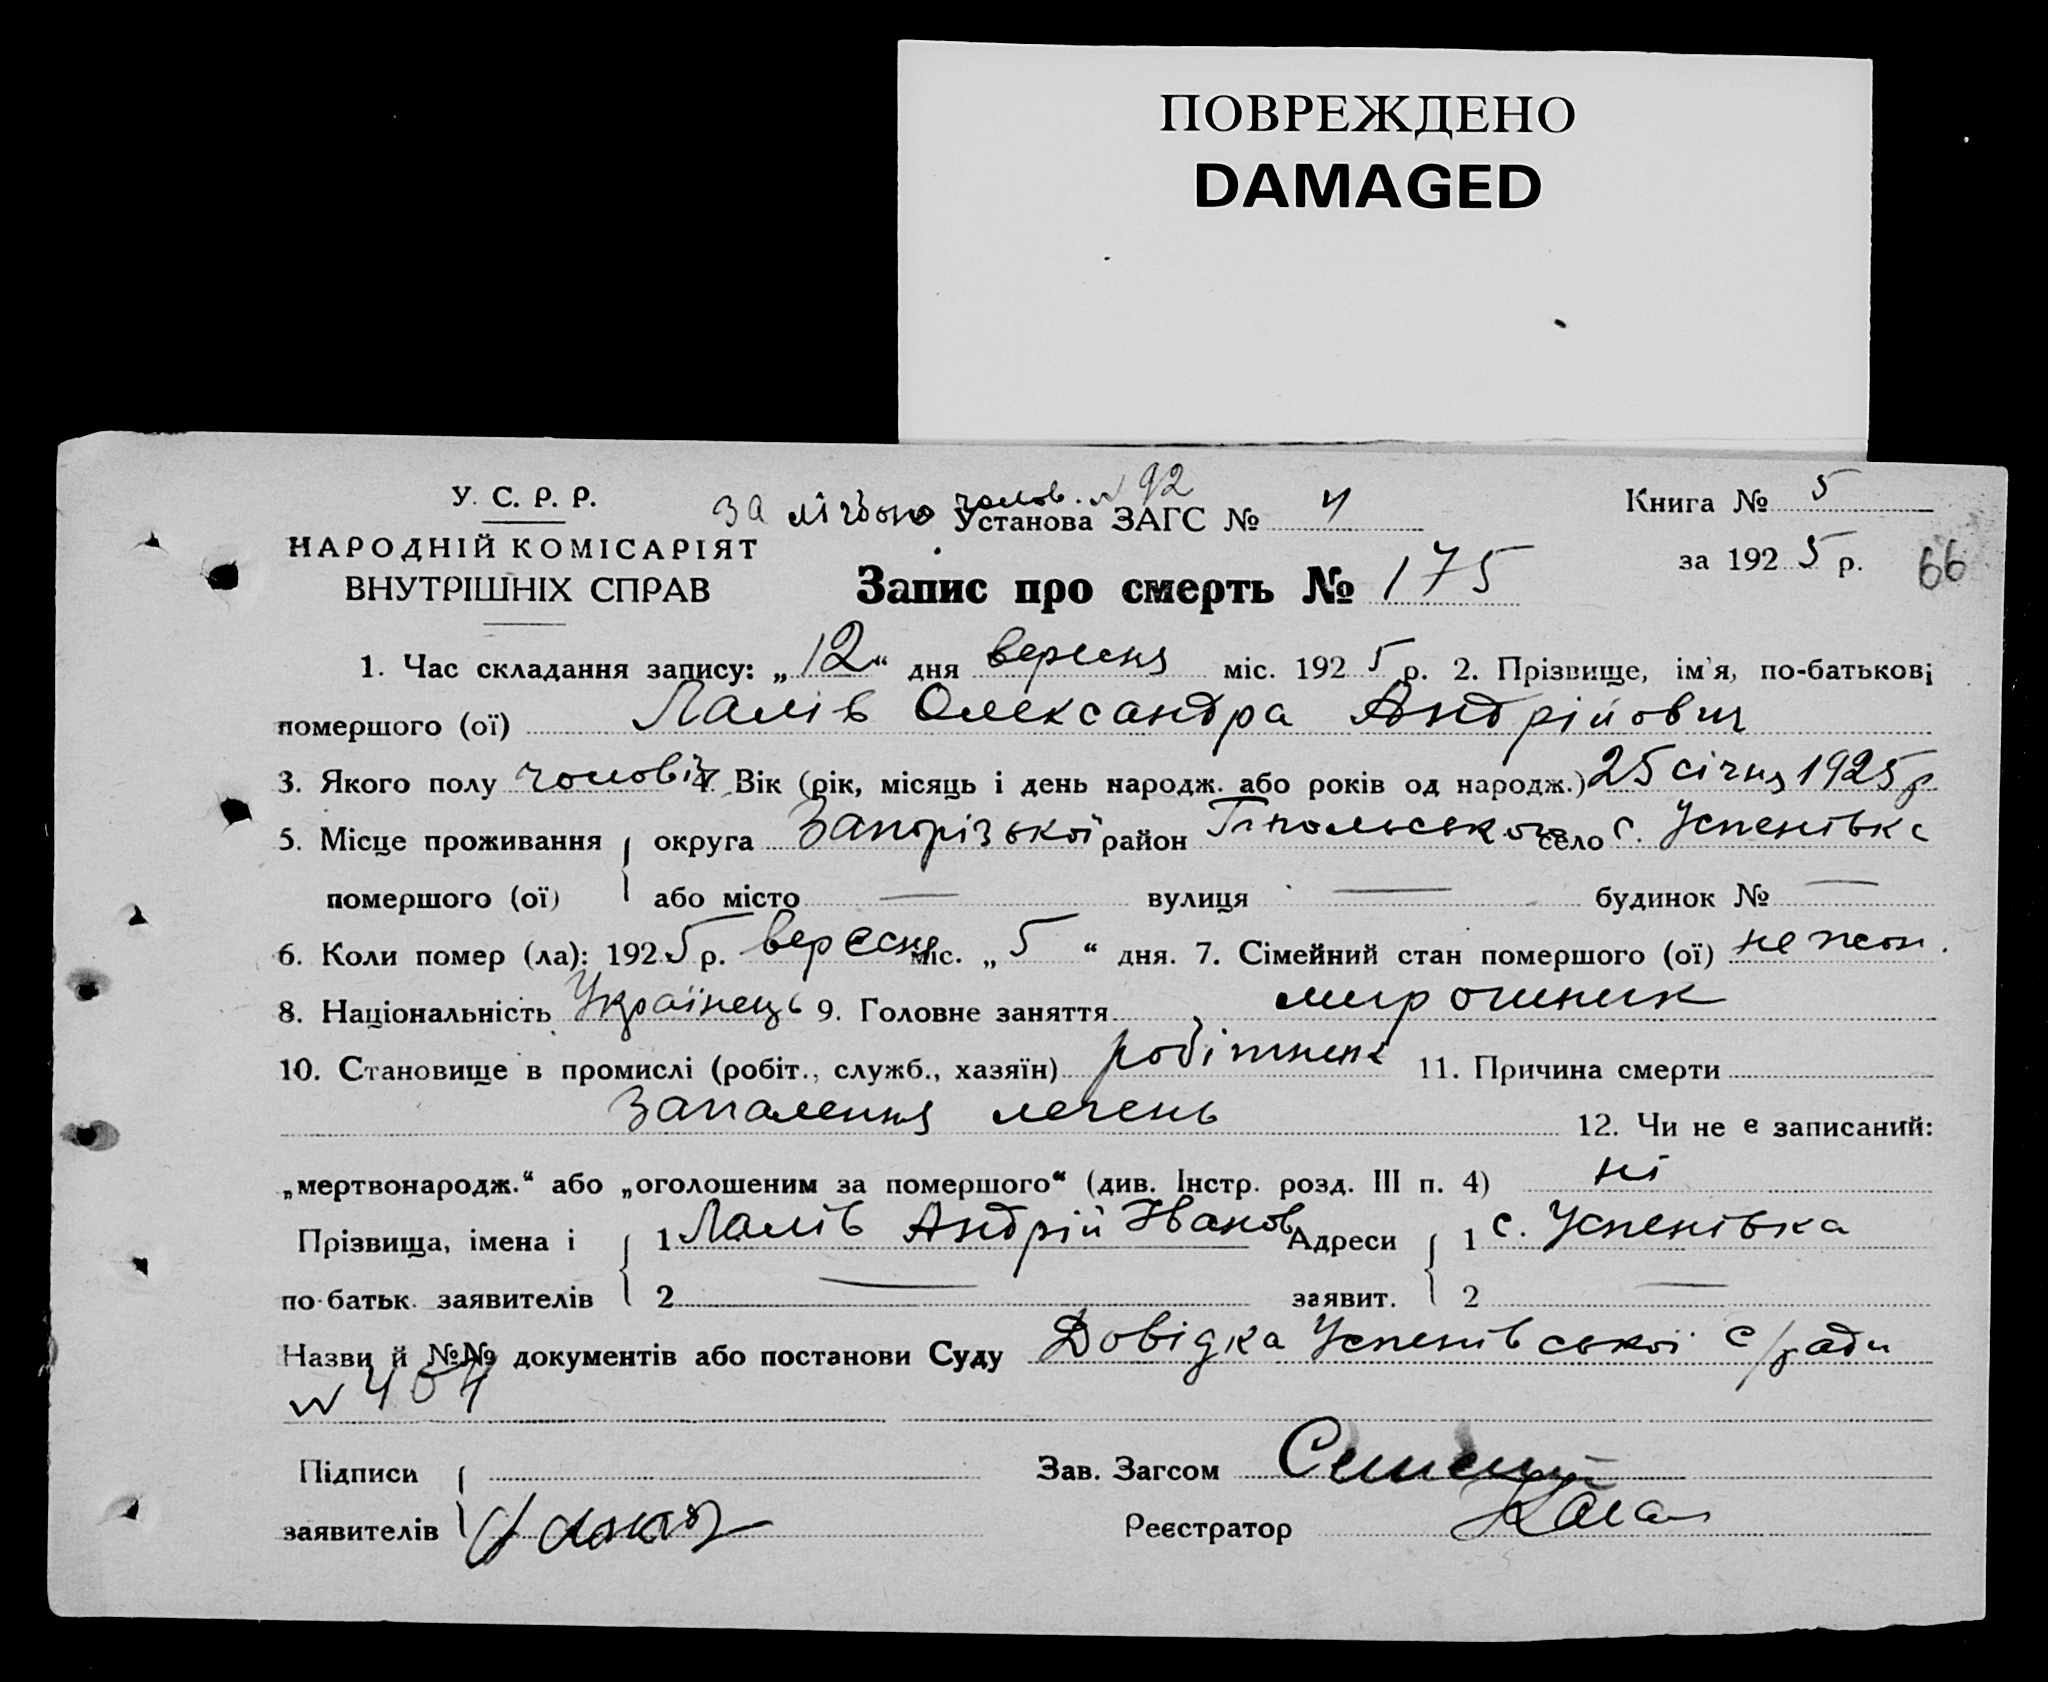 ПОВРЕЖДЕНО
DAMAGED
У. С. Р. Р.
НАРОДНІЙ КОМІСАРІЯТ
ВНУТРІШНІХ СПРАВ
за лічбою чолов. № 92
Установа ЗАГС № 4
Книга № 5
за 1925 р.
66
Запис про смерть № 175
1. Час складання запису: „12“ дня вересня міс. 1925 р. 2. Прізвище, ім'я, по-батькові
помершого (ої) Лалів Олександра Андрійович
3. Якого полу чоловік 4. Вік (рік, місяць і день народж. або років од народж.) 25 січня 1925 р
5. Місце проживання округа Запорізької район Гпольського село с. Успенівка
помершого (ої) або місто — вулиця — будинок № —
6. Коли помер (ла): 1925 р. вересня міс. „5“ дня. 7. Сімейний стан помершого (ої) не жон.
8. Національність Українець 9. Головне заняття мирошник
10. Становище в промислі (робіт., служб., хазяїн) робітник 11. Причина смерти
Запалення легень 12. Чи не є записаний:
„мертвонародж.“ або „оголошеним за помершого“ (див. Інстр. розд. III п. 4) ні
Прізвища, імена і 1 Лалів Андрій Іванов Адреси 1 с. Успенівка
по-батьк. заявителів 2 — заявит. 2 —
Назви й №№ документів або постанови Суду Довідка Успенівської с/ради
№ 404
Підписи Зав. Загсом
заявителів Реєстратор